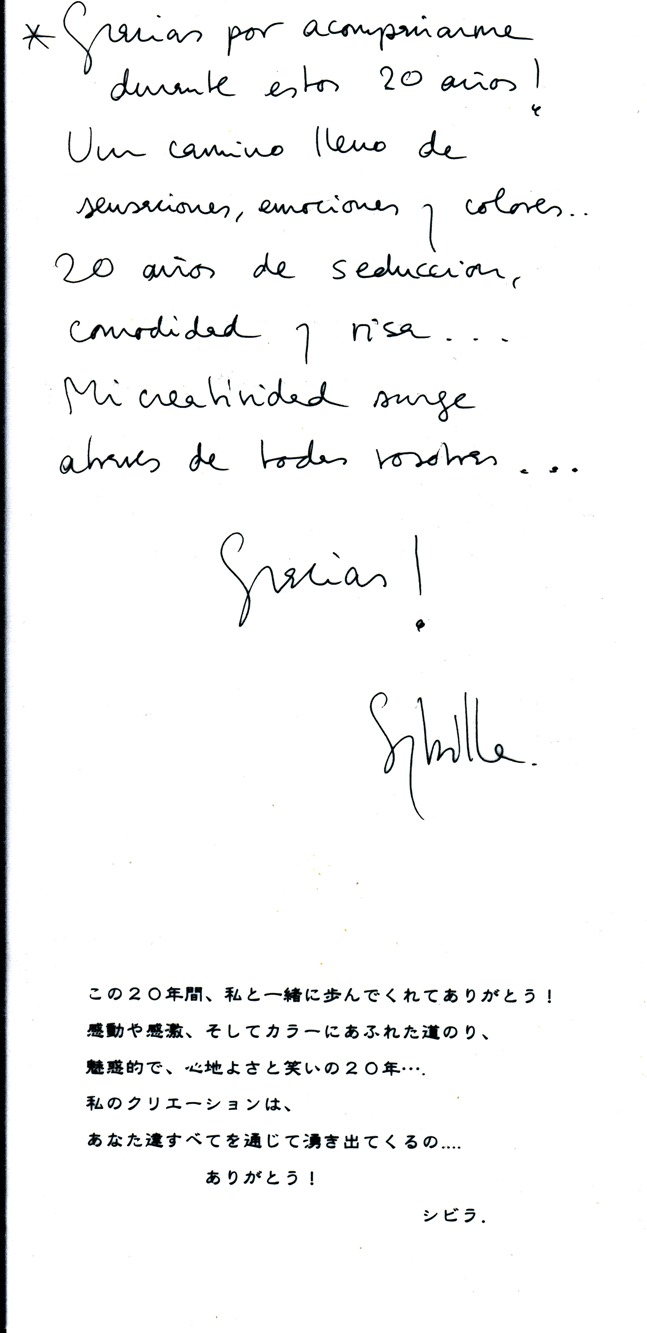 * Gracias por acompañarme
durante estos 20 años!
Un camino lleno de
sensaciones, emociones y colores..
20 años de seduccion,
comodidad y risa...
Mi creatividad surge
atraves de todas vosotras...
Gracias!
Sybilla.
この20年間、私と一緒に歩んでくれてありがとう！
感動や感激、そしてカラーにあふれた道のり、
魅惑的で、心地よさと笑いの20年….
私のクリエーションは、
あなた達すべてを通じて湧き出てくるの....
ありがとう！
シビラ.